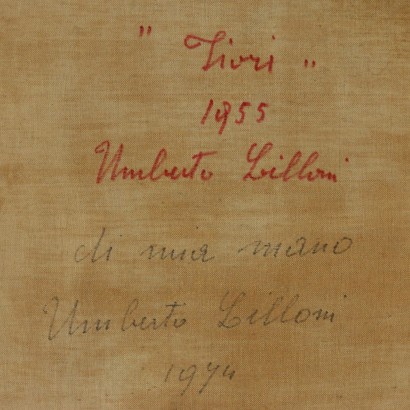 " Fiori "
1955
Umberto Lilloni
di mia mano
Umberto Lilloni
1974